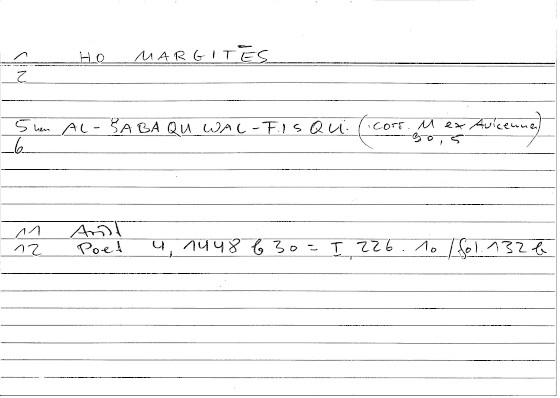 1 HO MARGITĒS
2
5 AL-ŠABAQU WAL-FISQU. (corr. M ex Avicenna
30, 5)
6
11 Arist
12 Poet 4, 1448 b 30 = I, 226. 10 / fol. 132 b